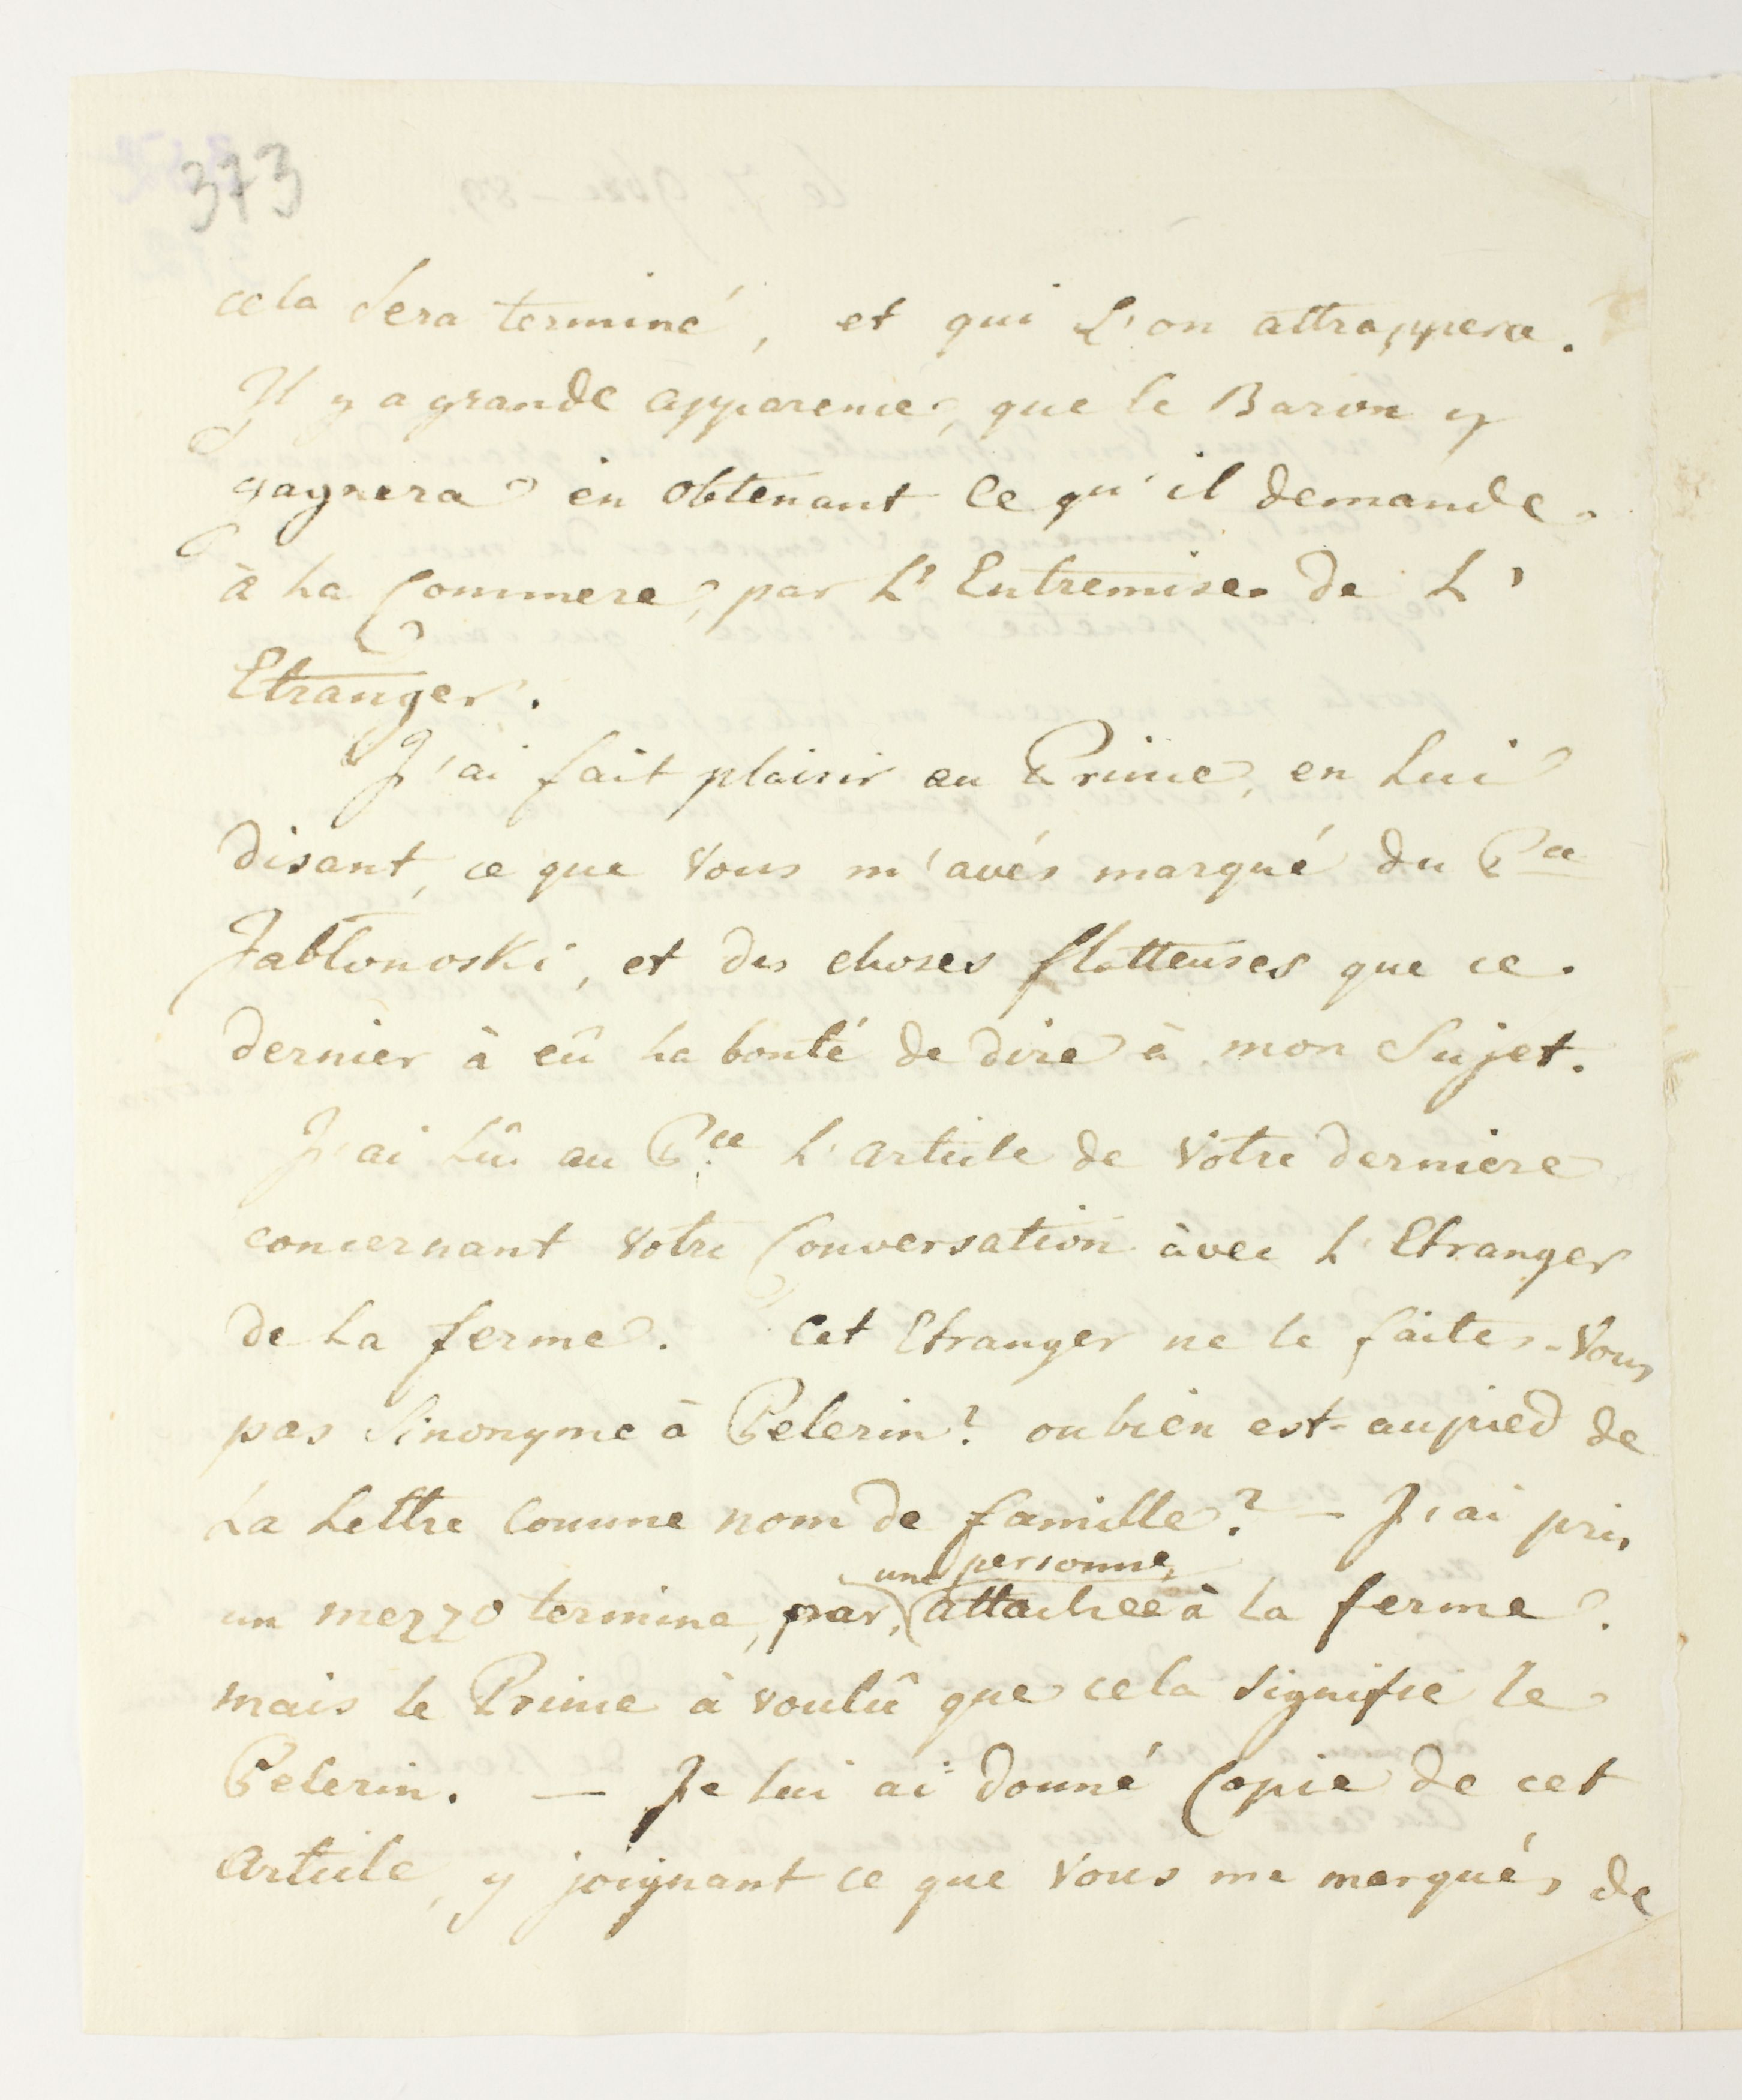 373
cela sera terminé, et qui l'on attrappera.
Il y a grande apparence, que le Baron y
gagnera en obtenant ce qu'il demande
à la Commere, par L'Entremise de L'
Etranger.
J'ai fait plaisir au Prince, en Lui
disant, ce que Vous m'avés marqué du Pce
Jablonoski, et des choses flatteuses que ce
dernier à eû la bonté de dire à mon Sujet.
J'ai Lû au Pce L'article de Votre derniere
concernant Votre Conversation àvec L'Etranger
de La ferme. Cet Etranger ne le faites-Vous
pas Sinonyme à Pelerin? ou bien est-au pied de
La Lettre comme nom de famille? — J'ai pris
une personne,
un mezzo termine, par, attachée à la ferme.
mais le Prince à voulû que cela signifie le
Pelerin. — Je lui ai donné Copie de cet
article, y joignant ce que Vous me marqués de